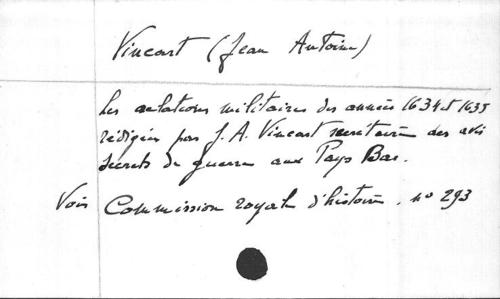 Vincart (Jean Antoine)
Les relations militaires des années 1634 et 1635
rédigées par J. A. Vincart secretaire des avis
secrets de guerre aux Pays Bas.
Voir Commission royale d'histoire. no 293